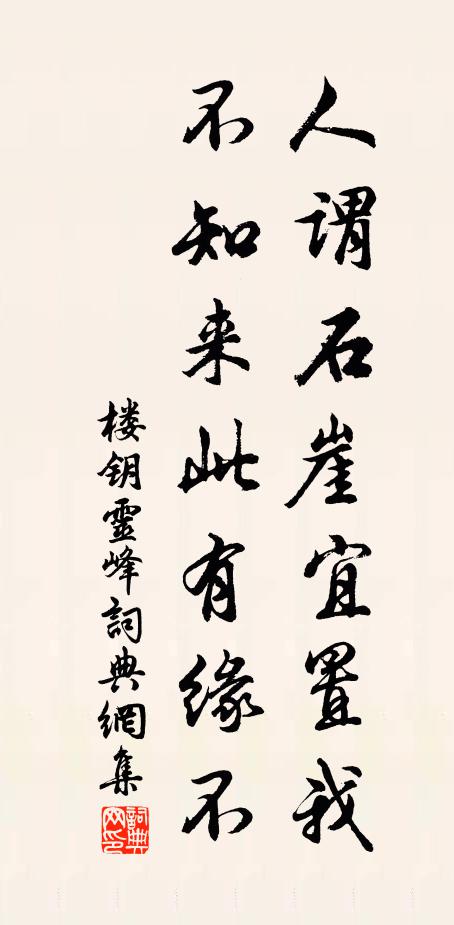 人謂石崖宜置我
不知来此有缘不
楼钥靈峰詞典網集
詞典网印